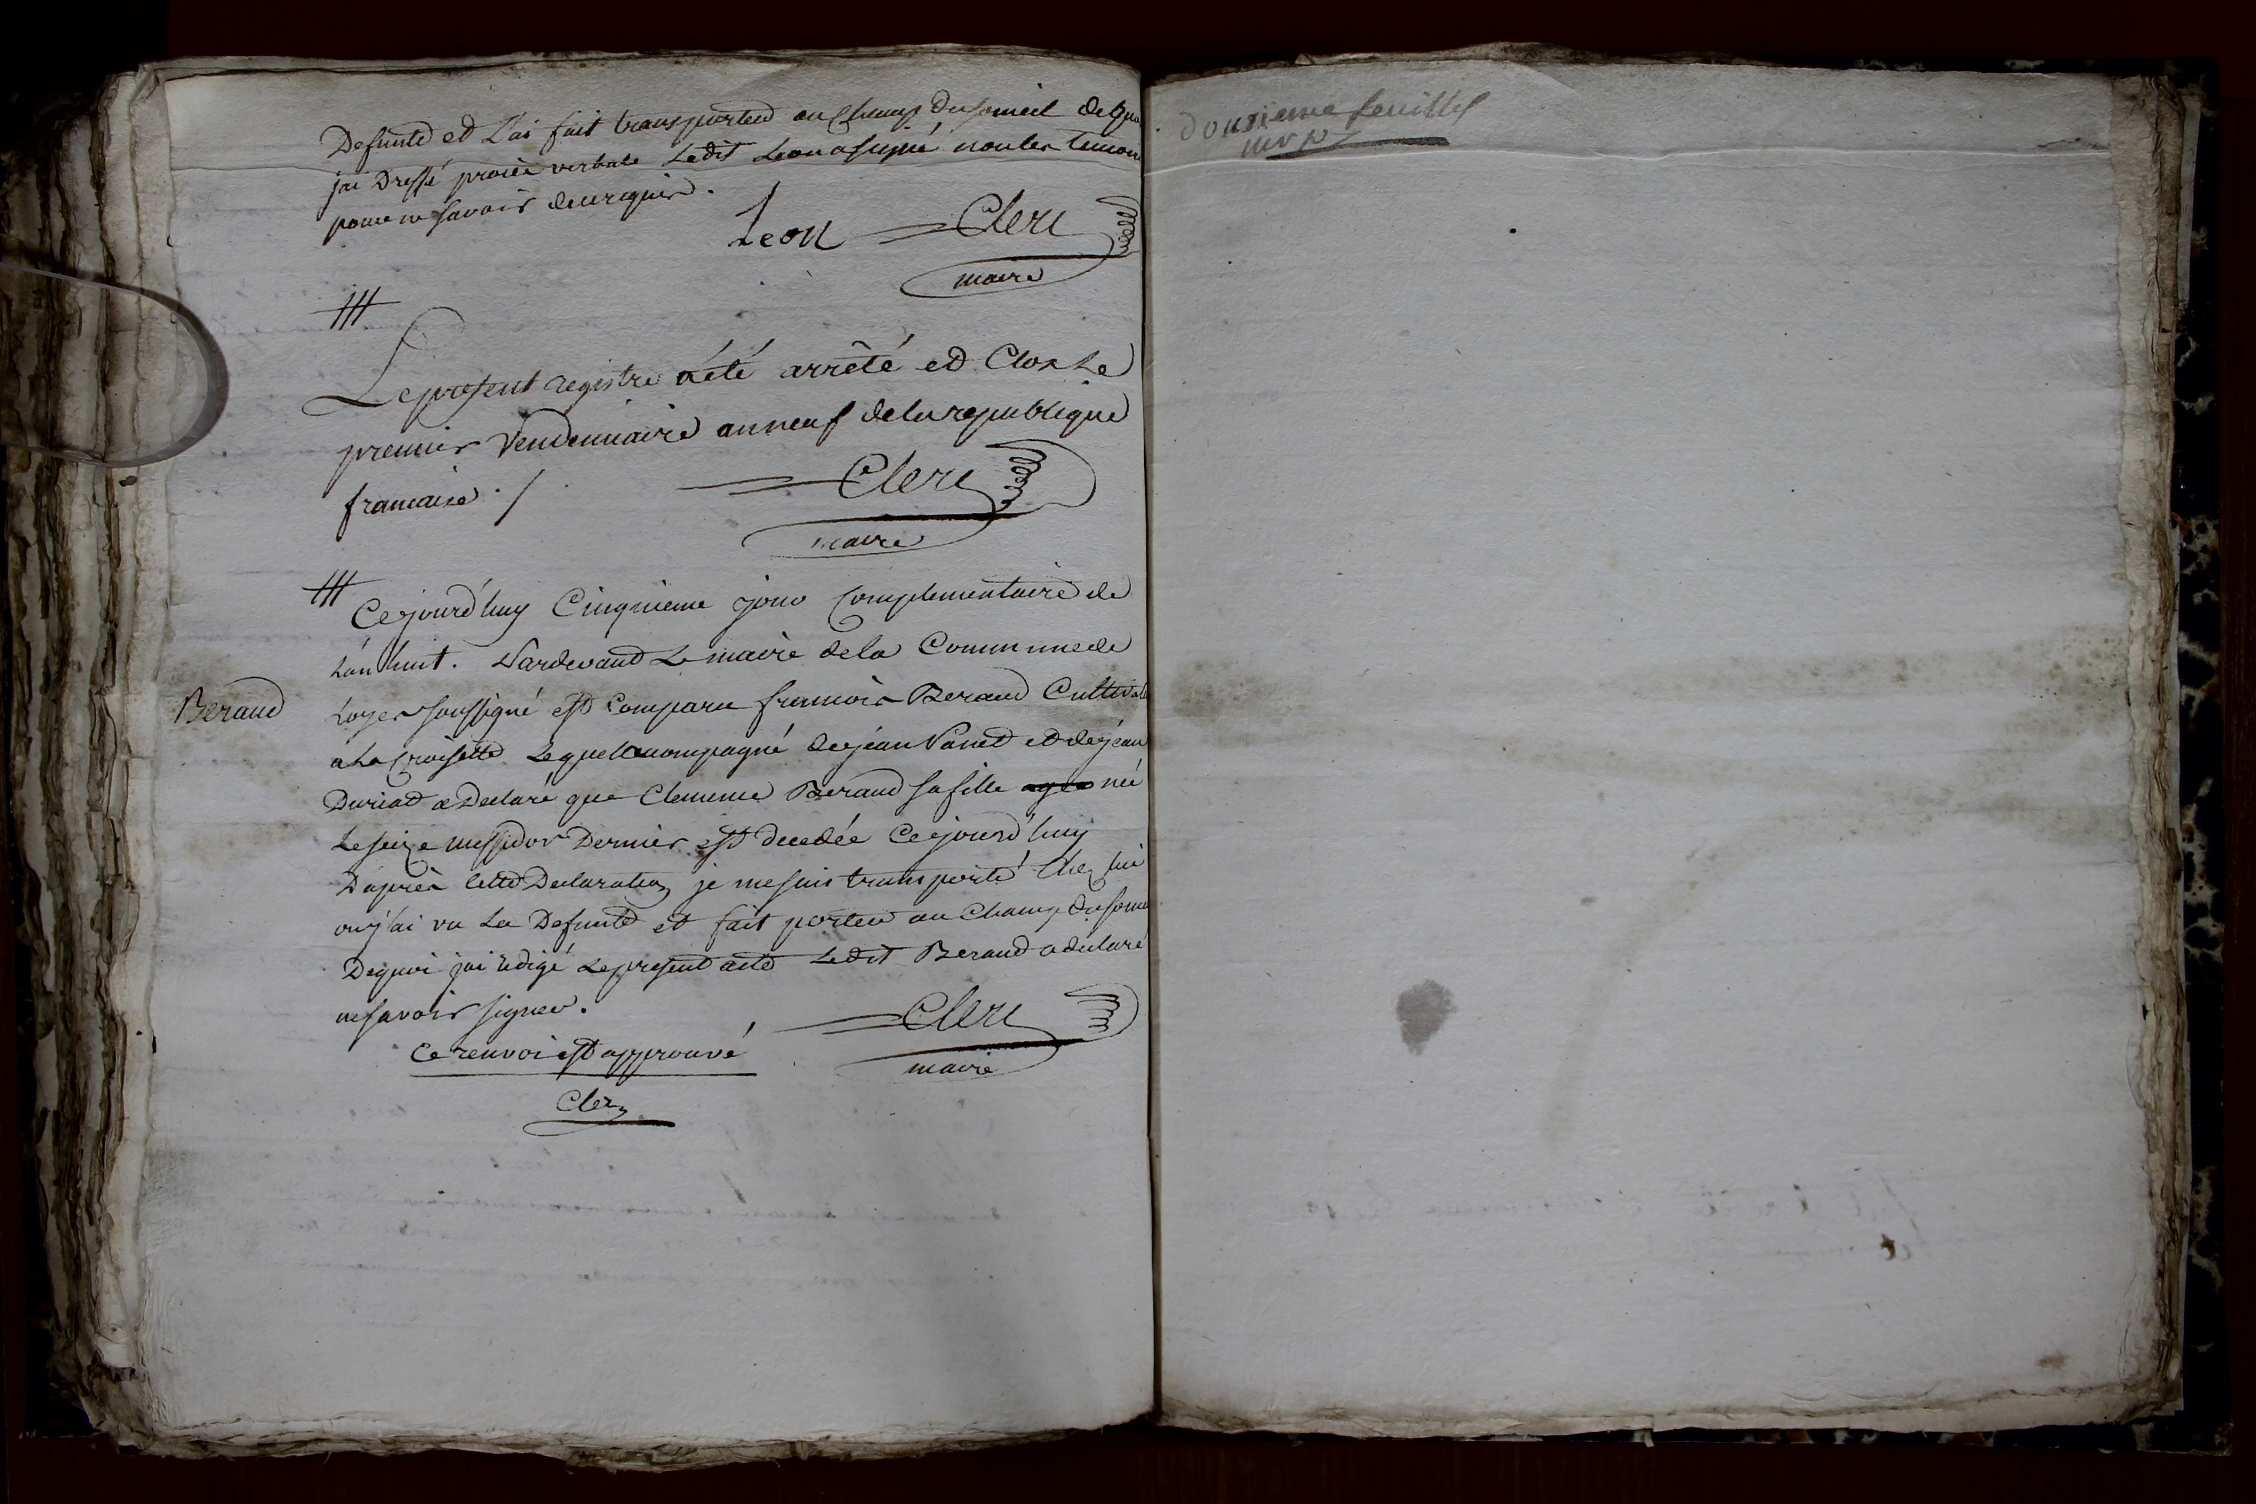 Defunte et L'ai fait transporter au Champ du someil de quoi
jai Dressé procès verbale Ledit Leon a signé non les temoin
pour ne savoir de ce requis.
Leon Clerc
maire
Le present registre a été arrêté et Clos Le
premier Vendemiaire an neuf de la republique
francaise ./.
Clerc
maire
Ce jourd'huy Cinquieme jour Complementaire de
L'an huit. Pardevant Le maire de la Commune de
Loyes soussigné est Comparu francois Beraud Cultivat
Beraud
a La Croisette Lequel accompagné de jean Panet et de jean
Duriat a Declaré que Clemence Beraud sa fille née
Le seize messidor Dernier est decedée Ce jourd'huy
D'après Cette Declaration je me suis transporté Chez lui
ou j'ai vu La Defunte et fait porter au Champ du some
De quoi jai redigé Le present acte Ledit Beraud a declaré
ne savoir signer.
Clerc
Ce renvoi est approuvé
maire
Clerc
douzieme feuillet